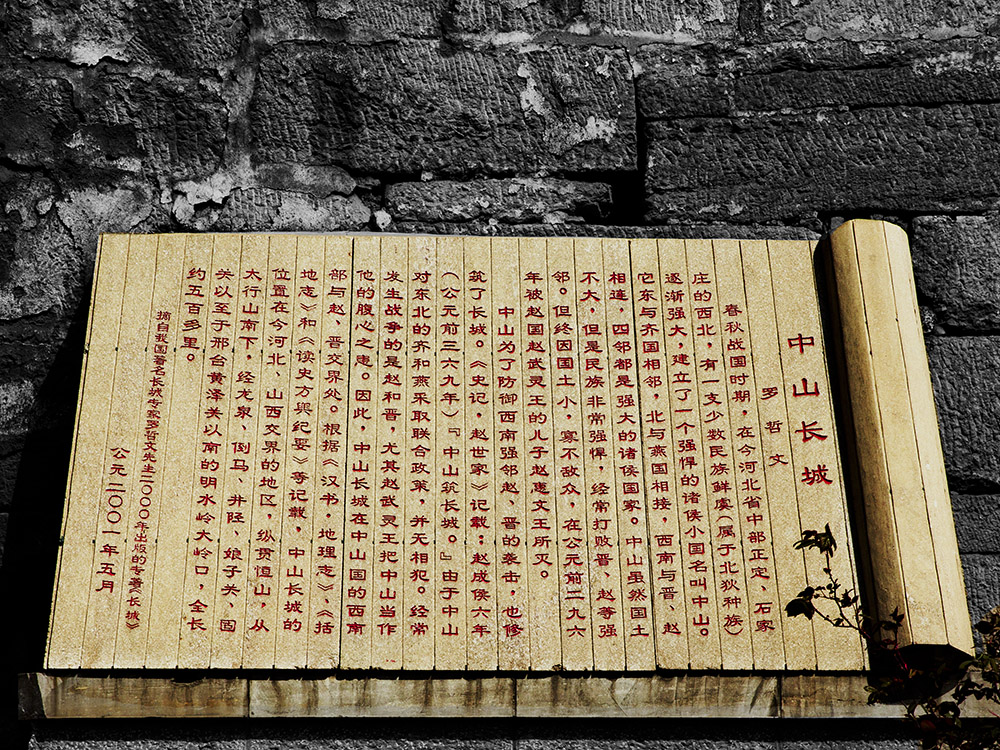 中山长城
罗哲文
春秋战国时期，在今河北省中部正定、石家
庄的西北，有一支少数民族鲜虞（属于北狄种族）
逐渐强大，建立了一个强悍的诸侯小国名叫中山。
它东与齐国相邻，北与燕国相接，西南与晋、赵
相连，四邻都是强大的诸侯国家。中山虽然国土
不大，但是民族非常强悍，经常打败晋、赵等强
邻。但终因国土小，寡不敌众，在公元前二九六
年被赵国赵武灵王的儿子赵惠文王所灭。
中山为了防御西南强邻赵、晋的袭击，也修
筑了长城。《史记，赵世家》记载：赵成侯六年
（公元前三六九年）『中山筑长城。』由于中山
对东北的齐和燕采取联合政策，并无相犯。经常
发生战争的是赵和晋，尤其赵武灵王把中山当作
他的腹心之患。因此，中山长城在中山国的西南
部与赵、晋交界处。根据《汉书，地理志》、《括
地志》和《读史方舆纪要》等记载，中山长城的
位置在今河北、山西交界的地区，纵贯恒山，从
太行山南下，经龙泉、倒马、井陉、娘子关、固
关以至于邢台黄泽关以南的明水岭大岭口，全长
约五百多里。
摘自我国著名长城专家罗哲文先生二000年出版的专著《长城》
公元二00一年五月